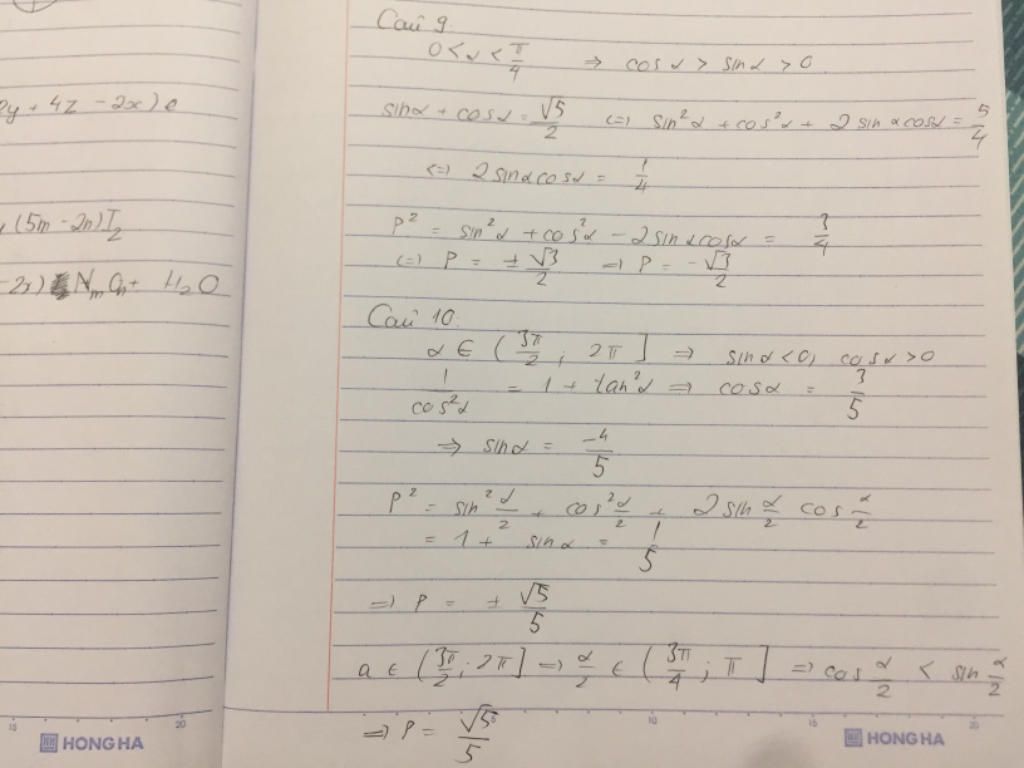 2y + 4z - 2x) e
(5m - 2n) I₂
- 2x) NₘOₙ + H₂O
Câu 9.
0 < α < π/4 ⇒ cosα > sinα > 0
sinα + cosα = √5/2 (=) sin²α + cos²α + 2 sinα cosα = 5/4
(=) 2 sinα cosα = 1/4
P² = sin²α + cos²α - 2 sinα cosα = 3/4
(=) P = ± √3/2 ⇒ P = -√3/2
Câu 10.
α ∈ (3π/2 ; 2π] ⇒ sinα < 0, cosα > 0
1/cos²α = 1 + tan²α ⇒ cosα = 3/5
⇒ sinα = -4/5
P² = sin² α/2 + cos² α/2 + 2 sin α/2 cos α/2
= 1 + sinα = 1/5
⇒ P = ± √5/5
a ∈ (3π/2 ; 2π] ⇒ α/2 ∈ (3π/4 ; π] ⇒ cos α/2 < sin α/2
⇒ P = √5/5
15 20
HONG HA
10 15 20
HONG HA